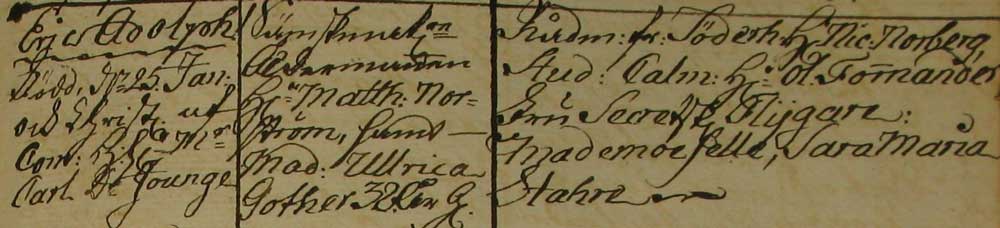 Eric Adolph.
Född, dn 25 Jan:
och Christ: af
Com: H:
Carl De Jounge
Åldermannen
Hr Matth: Nor-
ström, samt
Mad: Ullrica
Gother 32 år G.
Rådm: fr. Söderh. Hr Nic: Norberg,
Stud: Calm: Hr Ol. Fornander
Fru Secret: Flygare:
Mademoiselle, Sara Maria
Stahre